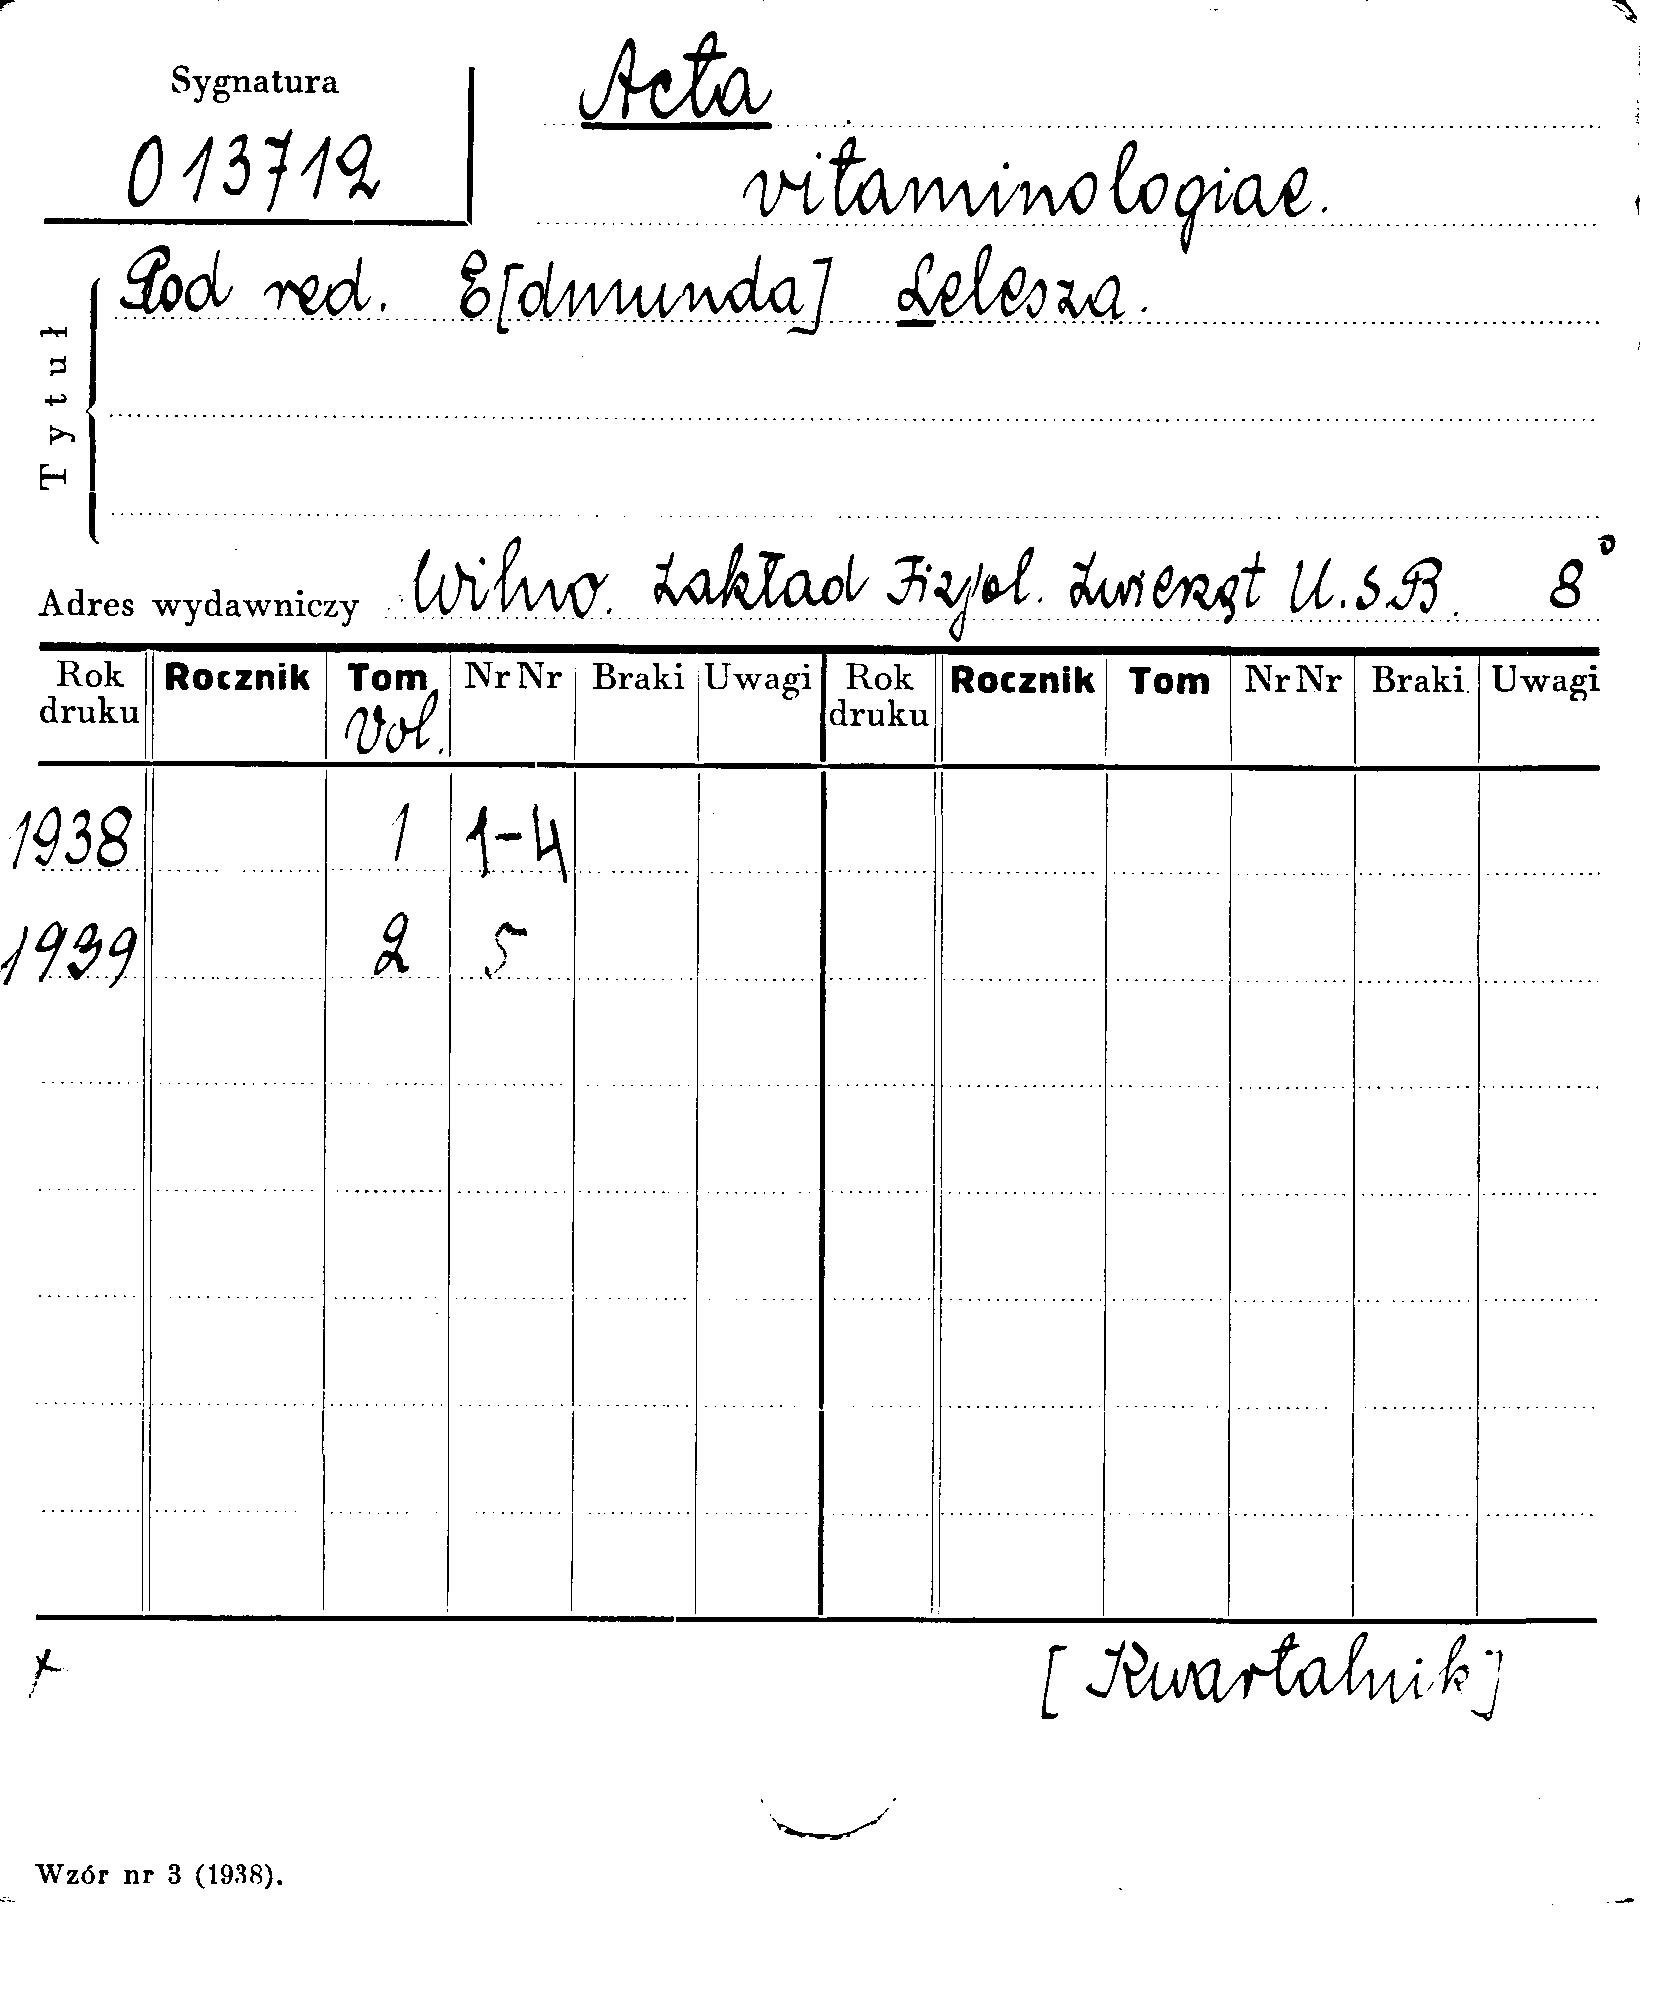 Sygnatura
013712
Acta
vitaminologiae.
Tytuł
Pod red. E[dmunda] Lelesza.
Adres wydawniczy Wilno. Zakład Fizjol. Zwierząt U.S.B. 8°
Rok druku Rocznik Tom Vol. Nr Nr Braki Uwagi Rok druku Rocznik Tom Nr Nr Braki Uwagi
1938 1 1-4
1939 2 5
[Kwartalnik]
Wzór nr 3 (1938).